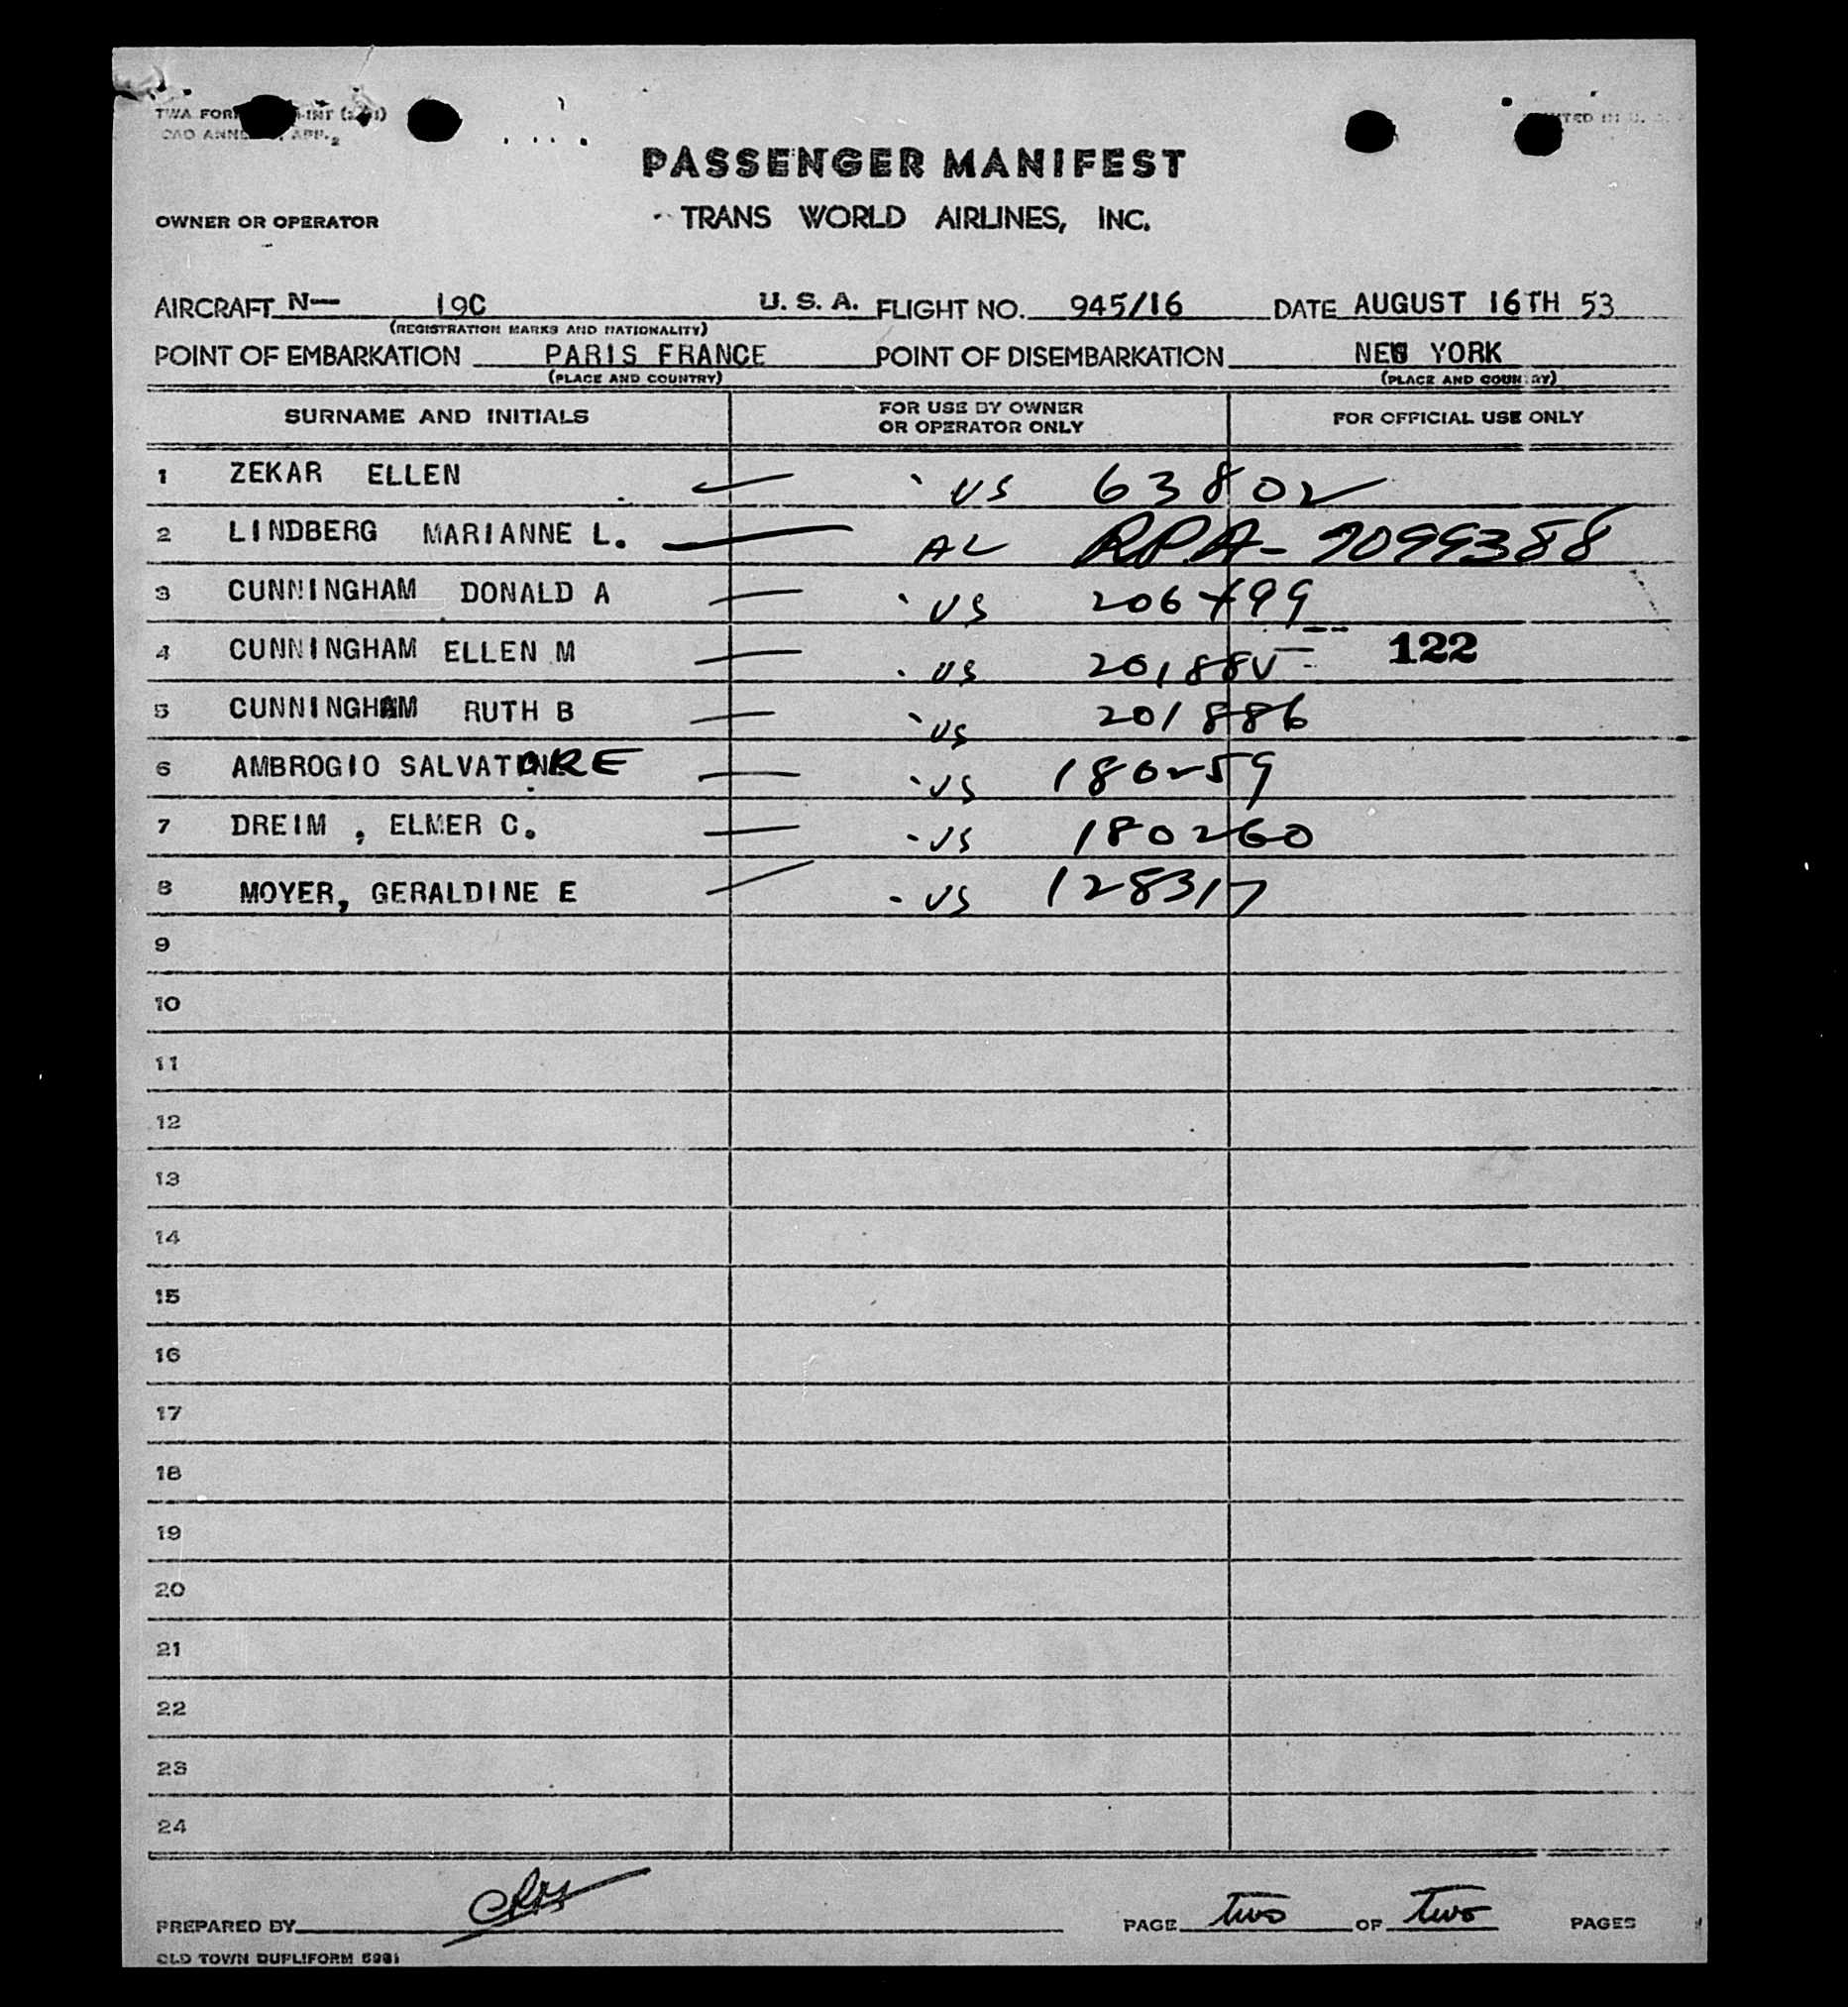 TWA FORM
PASSENGER MANIFEST
OWNER OR OPERATOR TRANS WORLD AIRLINES, INC.
AIRCRAFT N— 19C U. S. A. FLIGHT NO. 945/16 DATE AUGUST 16TH 53
(REGISTRATION MARKS AND NATIONALITY)
POINT OF EMBARKATION PARIS FRANCE POINT OF DISEMBARKATION NEW YORK
(PLACE AND COUNTRY) (PLACE AND COUNTRY)
SURNAME AND INITIALS FOR USE BY OWNER OR OPERATOR ONLY FOR OFFICIAL USE ONLY
1 ZEKAR ELLEN US 63802
2 LINDBERG MARIANNE L. AL RPA-7099388
3 CUNNINGHAM DONALD A US 206499
4 CUNNINGHAM ELLEN M US 122
5 CUNNINGHAM RUTH B US 201886
6 AMBROGIO SALVATORE US 180259
7 DREIM , ELMER C. US 180260
8 MOYER, GERALDINE E US 128317
9
10
11
12
13
14
15
16
17
18
19
20
21
22
23
24
PREPARED BY PAGE two OF two PAGES
OLD TOWN DUPLIFORM 5981